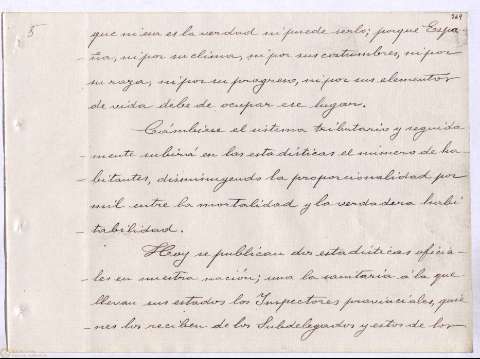 5
269
que ni esa es la verdad ni puede serlo; porque Espa-
-ña, ni por su clima, ni por sus costumbres, ni por
su raza, ni por su progreso, ni por sus elementos
de vida debe de ocupar ese lugar.
Cámbiese el sistema tributario y seguida-
-mente subirá en las estadísticas el número de ha-
-bitantes, disminuyendo la proporcionalidad por
mil entre la mortalidad y la verdadera habi-
-tabilidad.
Hoy se publican dos estadísticas oficia-
-les en nuestra nación; una la sanitaria á la que
llevan sus estados los Inspectores provinciales, quie-
-nes los reciben de los Subdelegados y estos de los